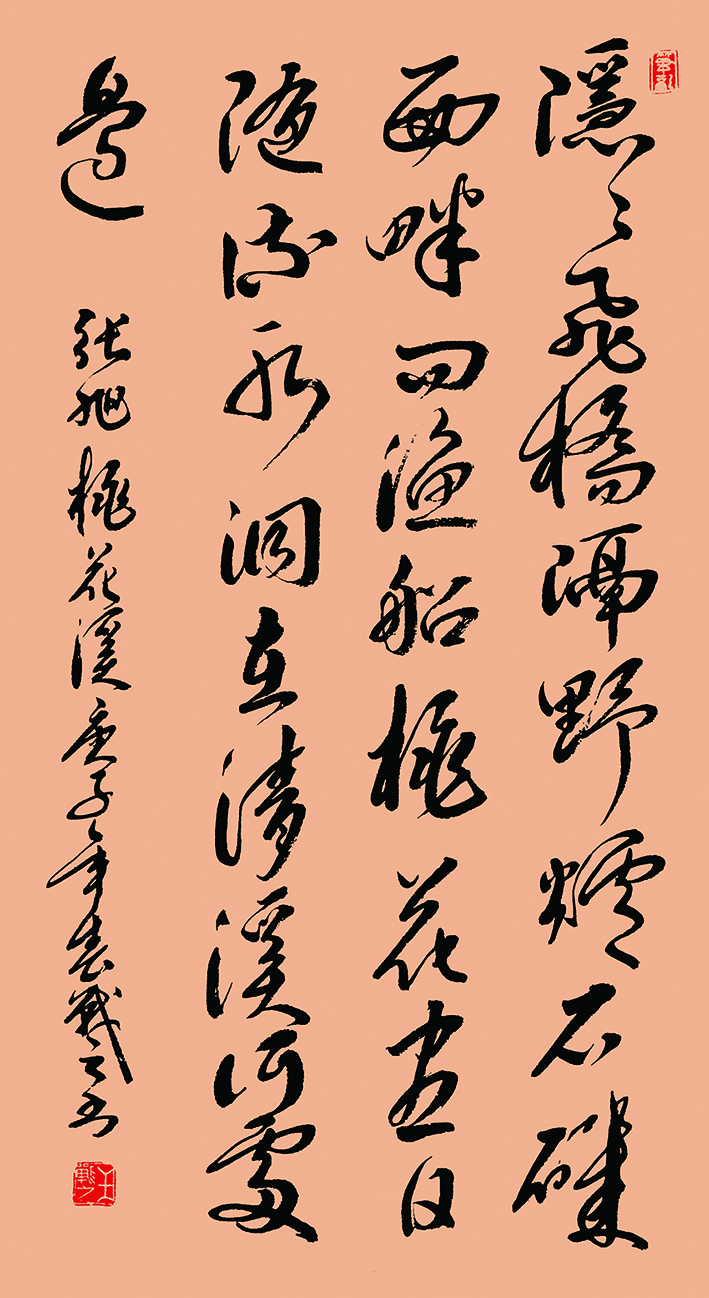 隱〻飛橋隔野煙石磯
西畔問漁船桃花盡日
隨流水洞在清溪何處
邊
張旭桃花溪庚子年春戰之書
王戰之